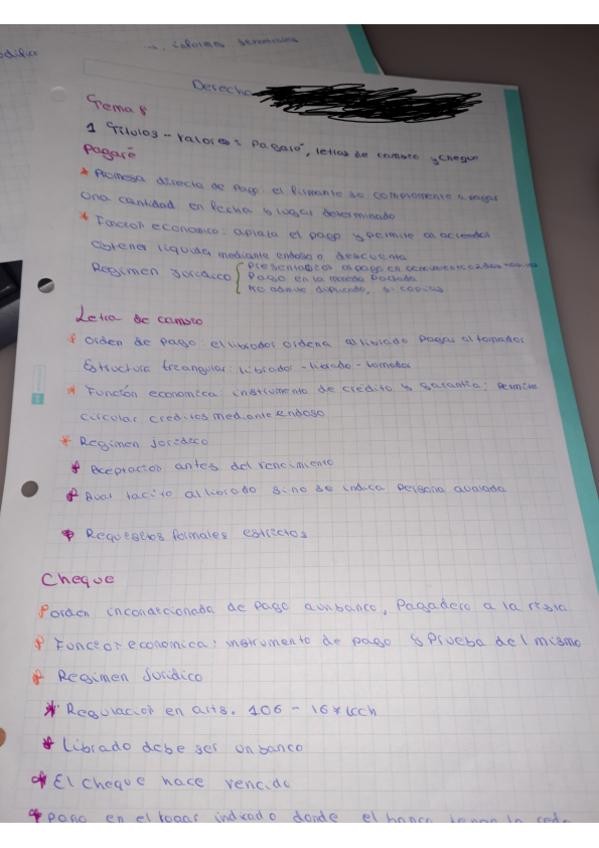 informes semestrales
Derecho
Tema 8
1 Títulos - valores: Pagaré, letras de cambio y cheque
Pagaré
* Promesa directa de Pago: el firmante se compromete a pagar
una cantidad en fecha y lugar determinado
* Función economico: aplaza el pago y permite al acreedor
obtener liquidez mediante endoso o descuento
Regimen Jurídico { Presentación al pago en vencimiento o 2 días
Pago en la moneda Pactada
No admite duplicado, si copias
Letra de cambio
* orden de Pago: el librador ordena al librado pagar al tomador
Estructura triangular: Librador - librado - tomador
* Función economica: instrumento de crédito y garantía: permite
circular creditos mediante endoso
* Regimen Jurídico
* Aceptación antes del vencimiento
* Aval tacito al librado si no se indica persona avalada
* Requisitos formales estrictos
Cheque
* orden incondicionada de pago a un banco, Pagadero a la vista
* Función economica: instrumento de pago y Prueba del mismo
* Regimen Jurídico
* Regulación en arts. 106 - 167 LCCH
* Librado debe ser un banco
* El cheque nace vencido
* pago en el lugar indicado donde el banco tenga la sede